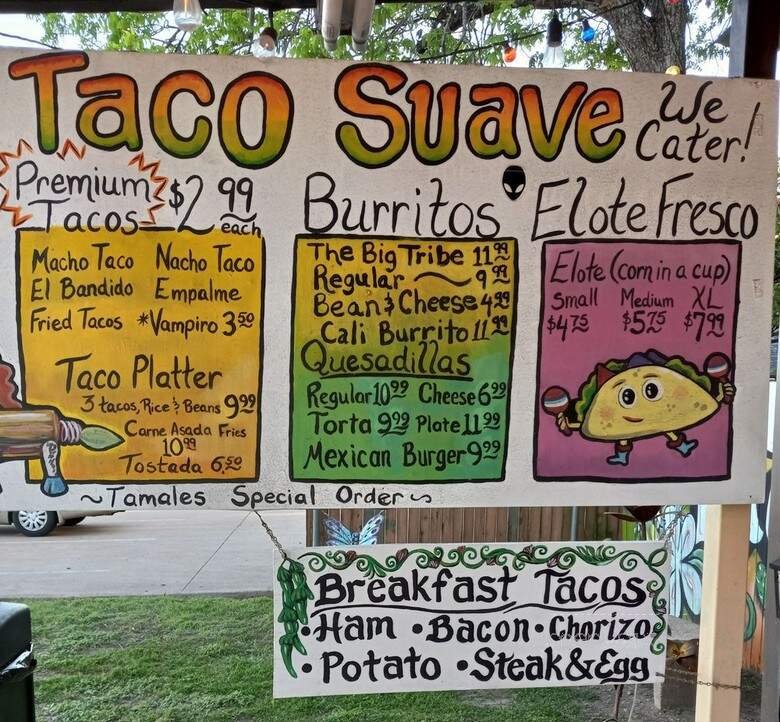 Taco Suave
We Cater!
Premium Tacos $2 99 each
Macho Taco Nacho Taco
El Bandido Empalme
Fried Tacos *Vampiro 3 50
Taco Platter
3 tacos, Rice & Beans 9 99
Carne Asada Fries
10 99
Tostada 6.50
Burritos
The Big Tribe 11 99
Regular ~ 9 99
Bean & Cheese 4 99
Cali Burrito 11 99
Quesadillas
Regular 10 99 Cheese 6 99
Torta 9 99 Plate 11 99
Mexican Burger 9 99
Elote Fresco
Elote (corn in a cup)
Small Medium XL
$4 75 $5 75 $7 99
~Tamales Special Order~
Breakfast Tacos
•Ham •Bacon •Chorizo
•Potato •Steak & Egg